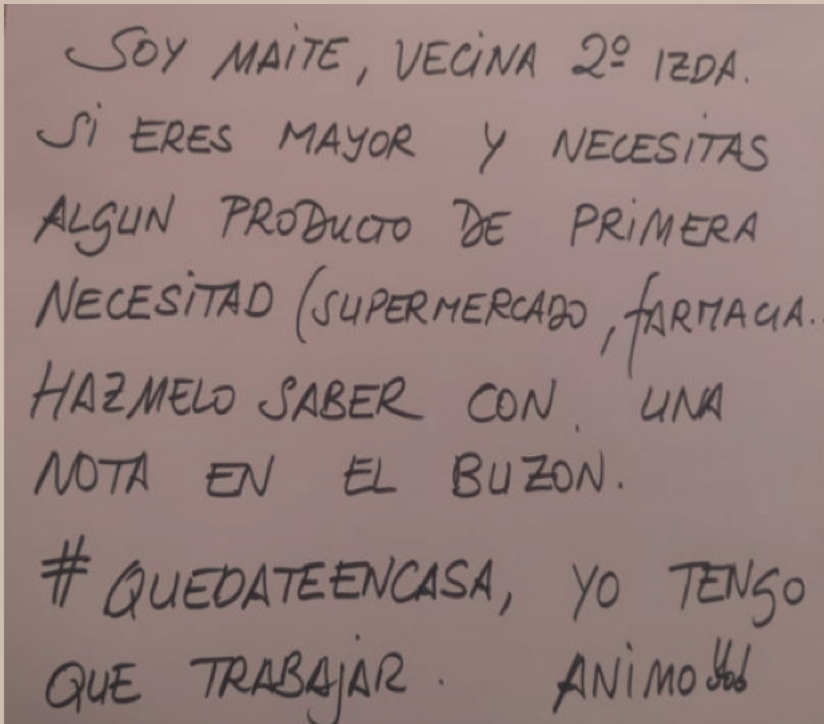 SOY MAITE, VECINA 2º IZDA.
SI ERES MAYOR Y NECESITAS
ALGUN PRODUCTO DE PRIMERA
NECESITAD (SUPERMERCADO, FARMACIA..
HAZMELO SABER CON UNA
NOTA EN EL BUZON.
# QUEDATEENCASA, YO TENGO
QUE TRABAJAR. ANIMO!!!